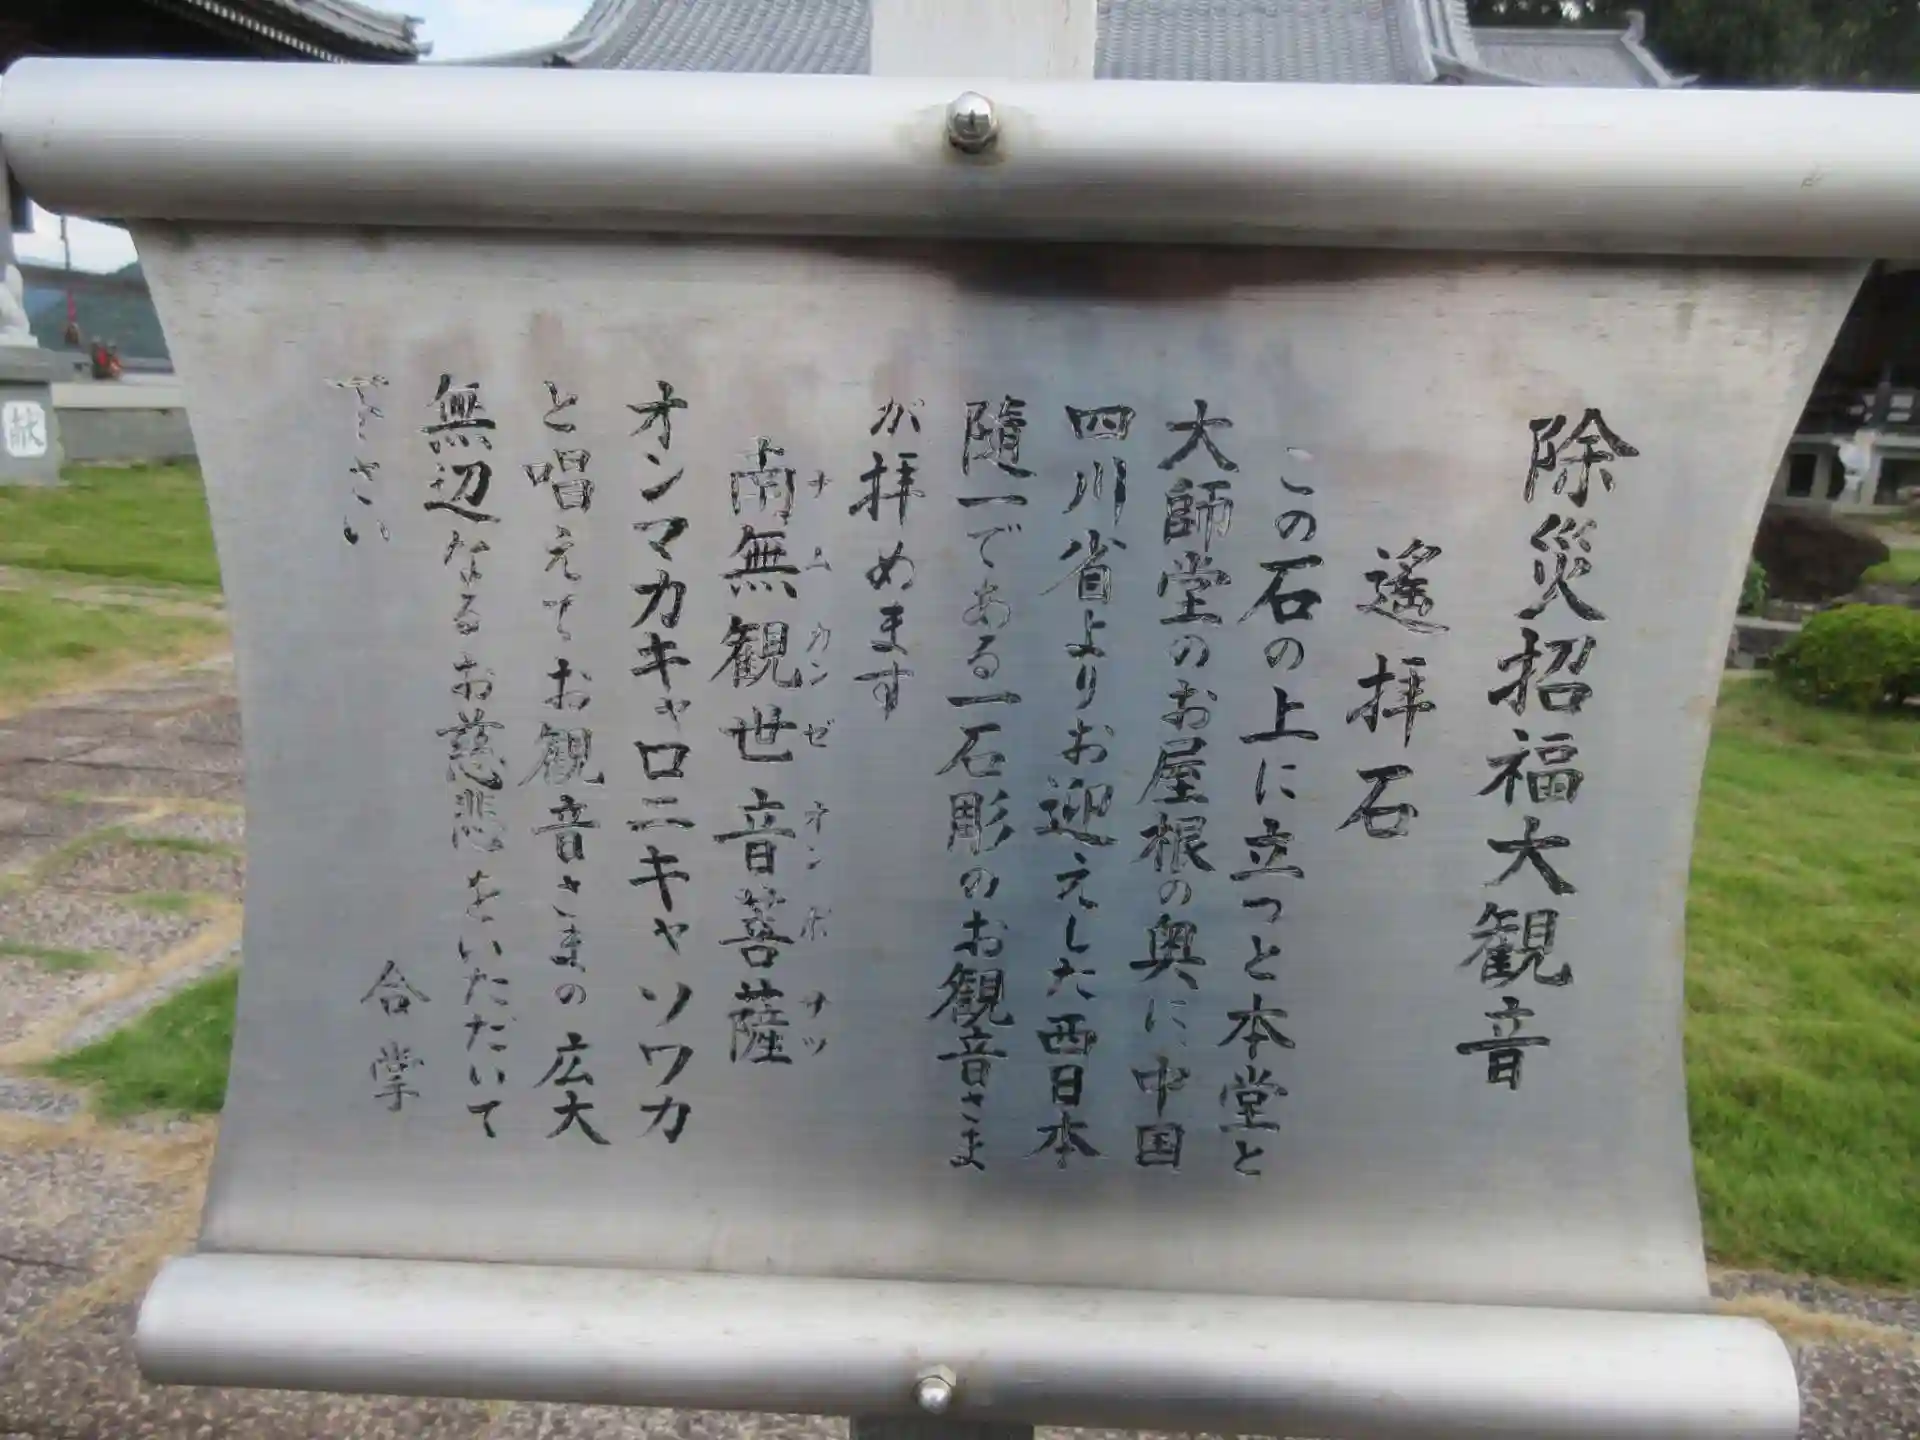 除災招福大観音
遙拝石
この石の上に立つと本堂と
大師堂のお屋根の奥に中国
四川省よりお迎えした西日本
随一である一石彫のお観音さま
が拝めます
ナムカンゼオンボサツ
南無観世音菩薩
オンマカキャロニキャソワカ
と唱えてお観音さまの広大
無辺なるお慈悲をいただいて
下さい
合掌
献